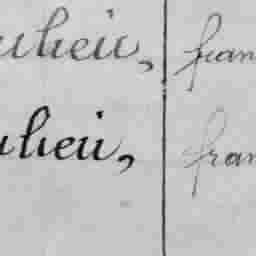 ulieu, fran
ulieu, fran